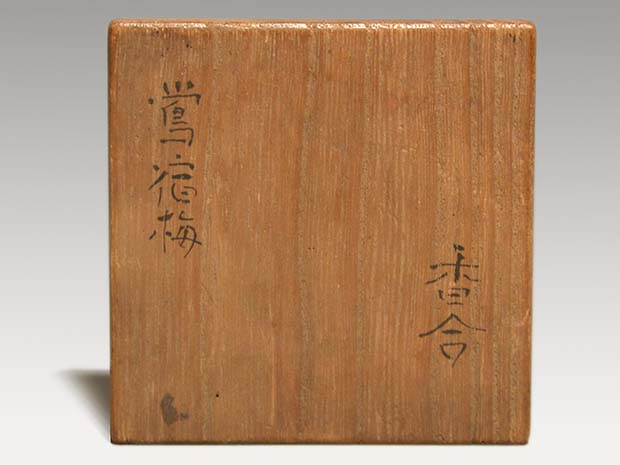 香合
鶯宿梅